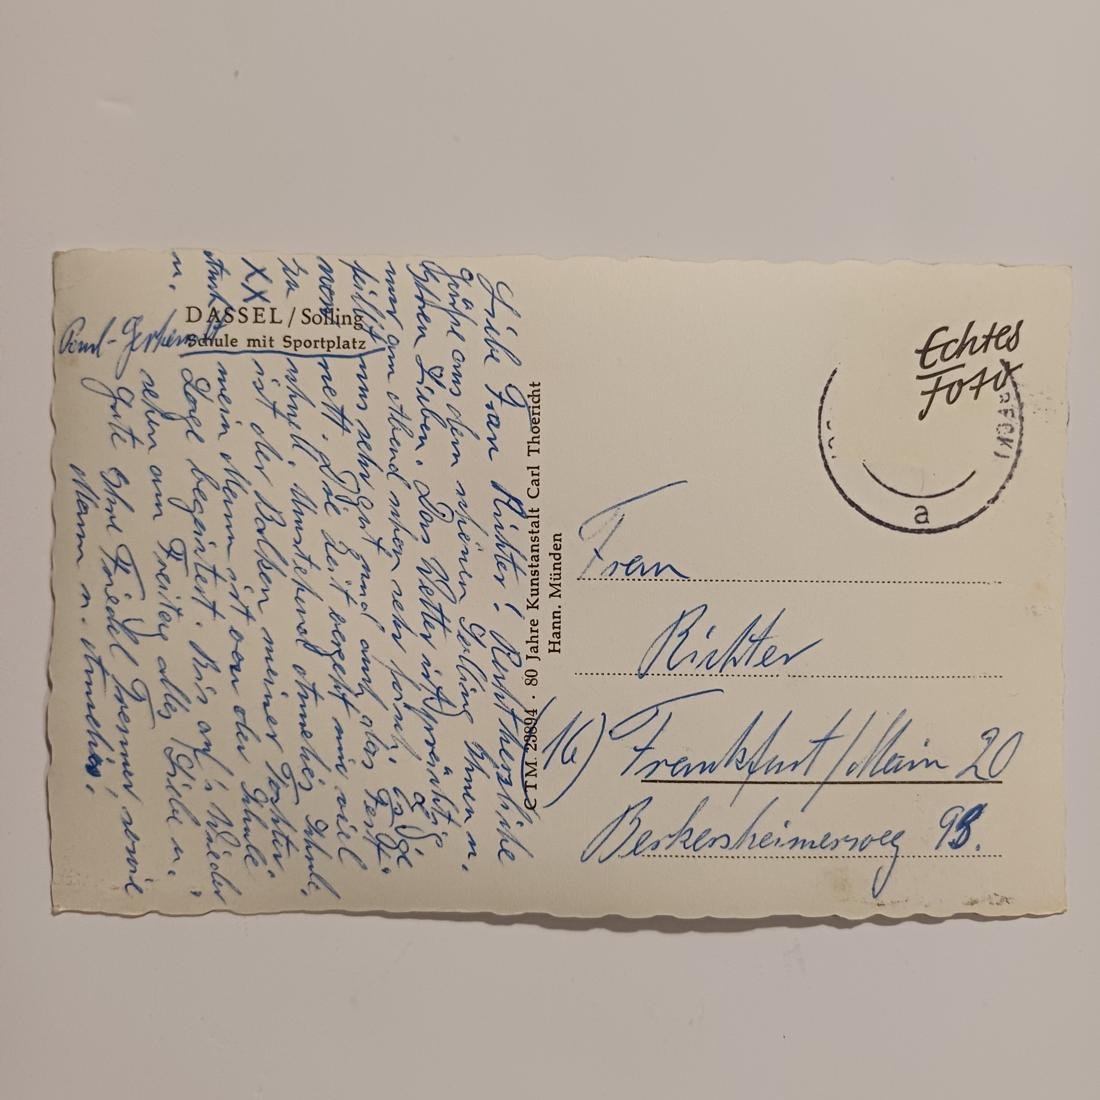 DASSEL / Solling
Schule mit Sportplatz
Liebe Frau Richter! Recht herzliche
Grüße aus dem schönen Solling Ihnen u.
Ihren Lieben. Das Wetter ist prächtig,
nur am Abend schon sehr frisch. Es ge-
fällt uns sehr gut und auch das Fest
war nett. Die Zeit vergeht nur viel
zu schnell. Umstehend Annelies Schule,
XX ist der Balkon meiner Tochter.
Auch mein Mann ist von der Schule
u. Lage begeistert. Bis auf's Wieder
sehen am Freitag alles Liebe u.
Gute Ihre Friedel sowie
Mann u. Annelies.
CTM. 23894 · 80 Jahre Kunstanstalt Carl Thoericht
Hann. Münden
Echtes
Foto
a
Frau
Richter
(16) Frankfurt/Main 20
Berkersheimerweg 93.